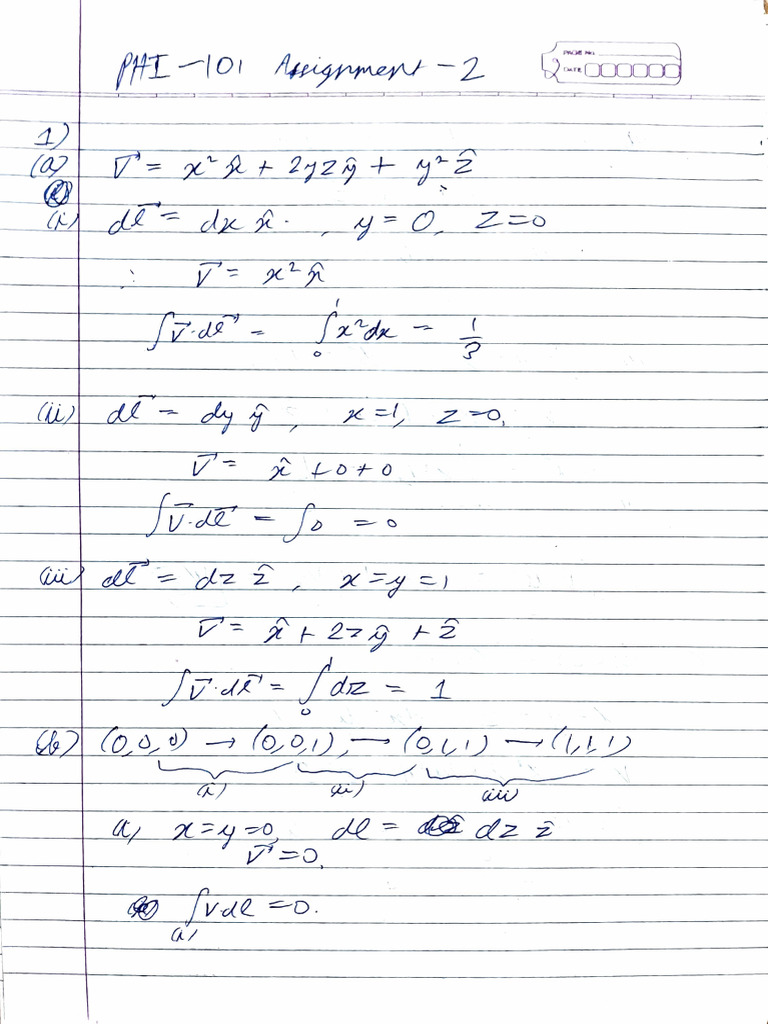 PHI-101 Assignment-2
PAGE NO.
DATE
1)
(a) V⃗ = x² x̂ + 2yz ŷ + y² ẑ
(i) dl⃗ = dx x̂. , y = 0, z = 0
∴ V⃗ = x² x̂
∫V⃗·dl⃗ = ∫₀¹ x² dx = 1/3
(ii) dl⃗ = dy ŷ , x = 1, z = 0,
V⃗ = x̂ + 0 + 0
∫V⃗·dl⃗ = ∫0 = 0
(iii) dl⃗ = dz ẑ , x = y = 1
V⃗ = x̂ + 2z ŷ + ẑ
∫V⃗·dl⃗ = ∫₀¹ dz = 1
(b) (0,0,0) → (0,0,1), → (0,1,1) → (1,1,1)
(i) (ii) (iii)
a, x = y = 0, dl = dz ẑ
V⃗ = 0,
∫V·dl = 0.
a,